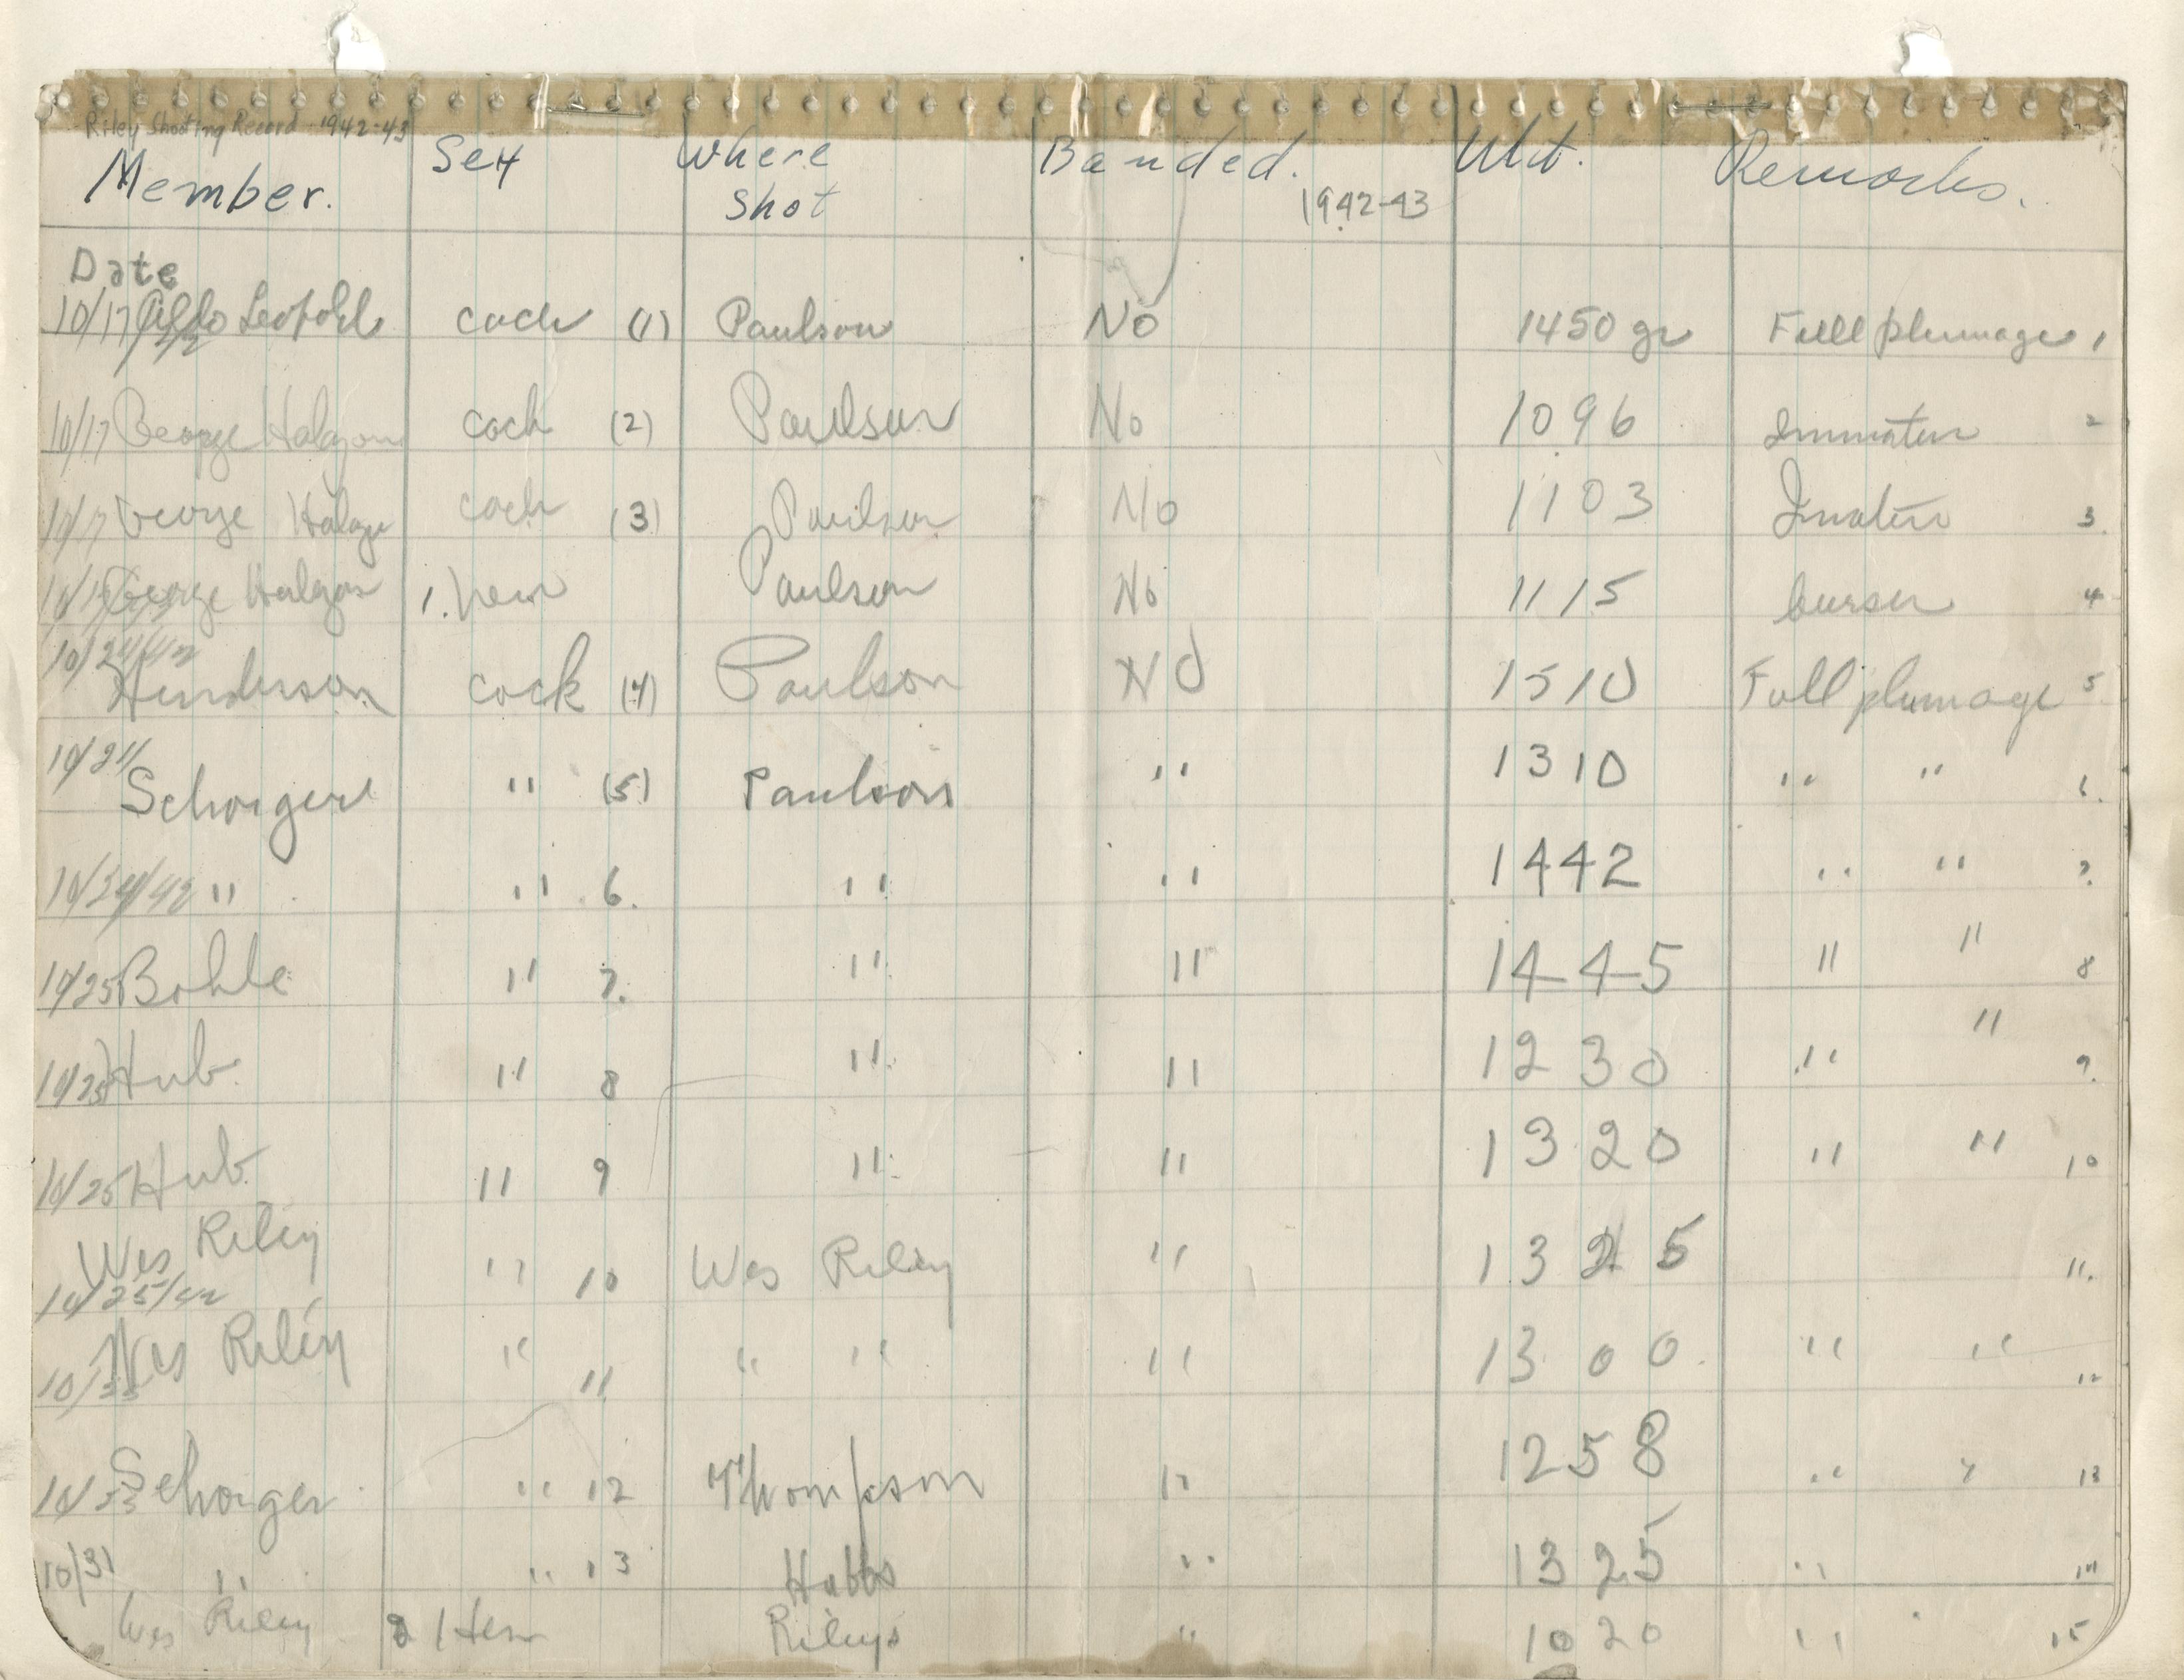 Riley Shooting Record 1942-43
Member. Sex Where Shot Banded. 1942-43 Wht. Remarks.
Date
10/17 Aldo Leopold cock (1) Paulson No 1450 gr Full plumage 1
10/17 George Halazon cock (2) Paulson No 1096 Immature 2
10/17 George cock (3) Paulson No 1103 3
George hen Paulson No 1115 bursa 4
10/24/42 Henderson cock (4) Paulson NO 1510 Full plumage 5
10/24 Schorger " (5) Paulson " 1310 " " 6.
10/24/42 " " 6. " " 1442 " " 7.
10/25 Bohle " 7. " " 1445 " " 8
10/25 Hub " 8 " " 1230 " " 9.
10/25 Hub " 9 " " 1320 " " 10
Wes Riley 10/25/42 " 10 Wes Riley " 1325 11.
10/25 Wes Riley " 11 " " " 1300 " " 12
10/25 Schorger " 12 Thompson " 1258 " " 13
10/31 " " 13 Hubbs " 1325 " 14
Wes Riley 2 1 Hen Rileys " 1020 " 15